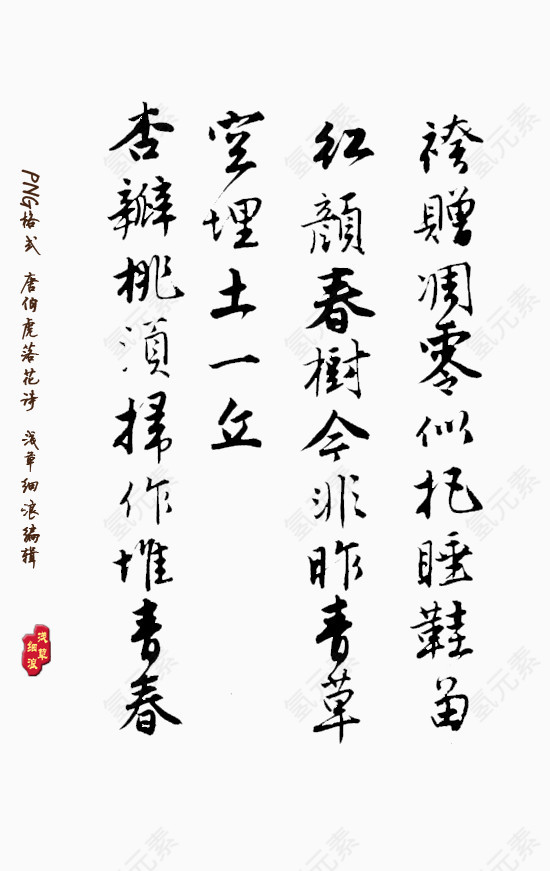 袴贈凋零似把睡鞋留
红顔春樹今非昨青草
空埋土一丘
杏瓣桃須掃作堆青春
PNG格式 唐伯虎落花诗 浅草细浪编辑
浅草
细浪
氢元素